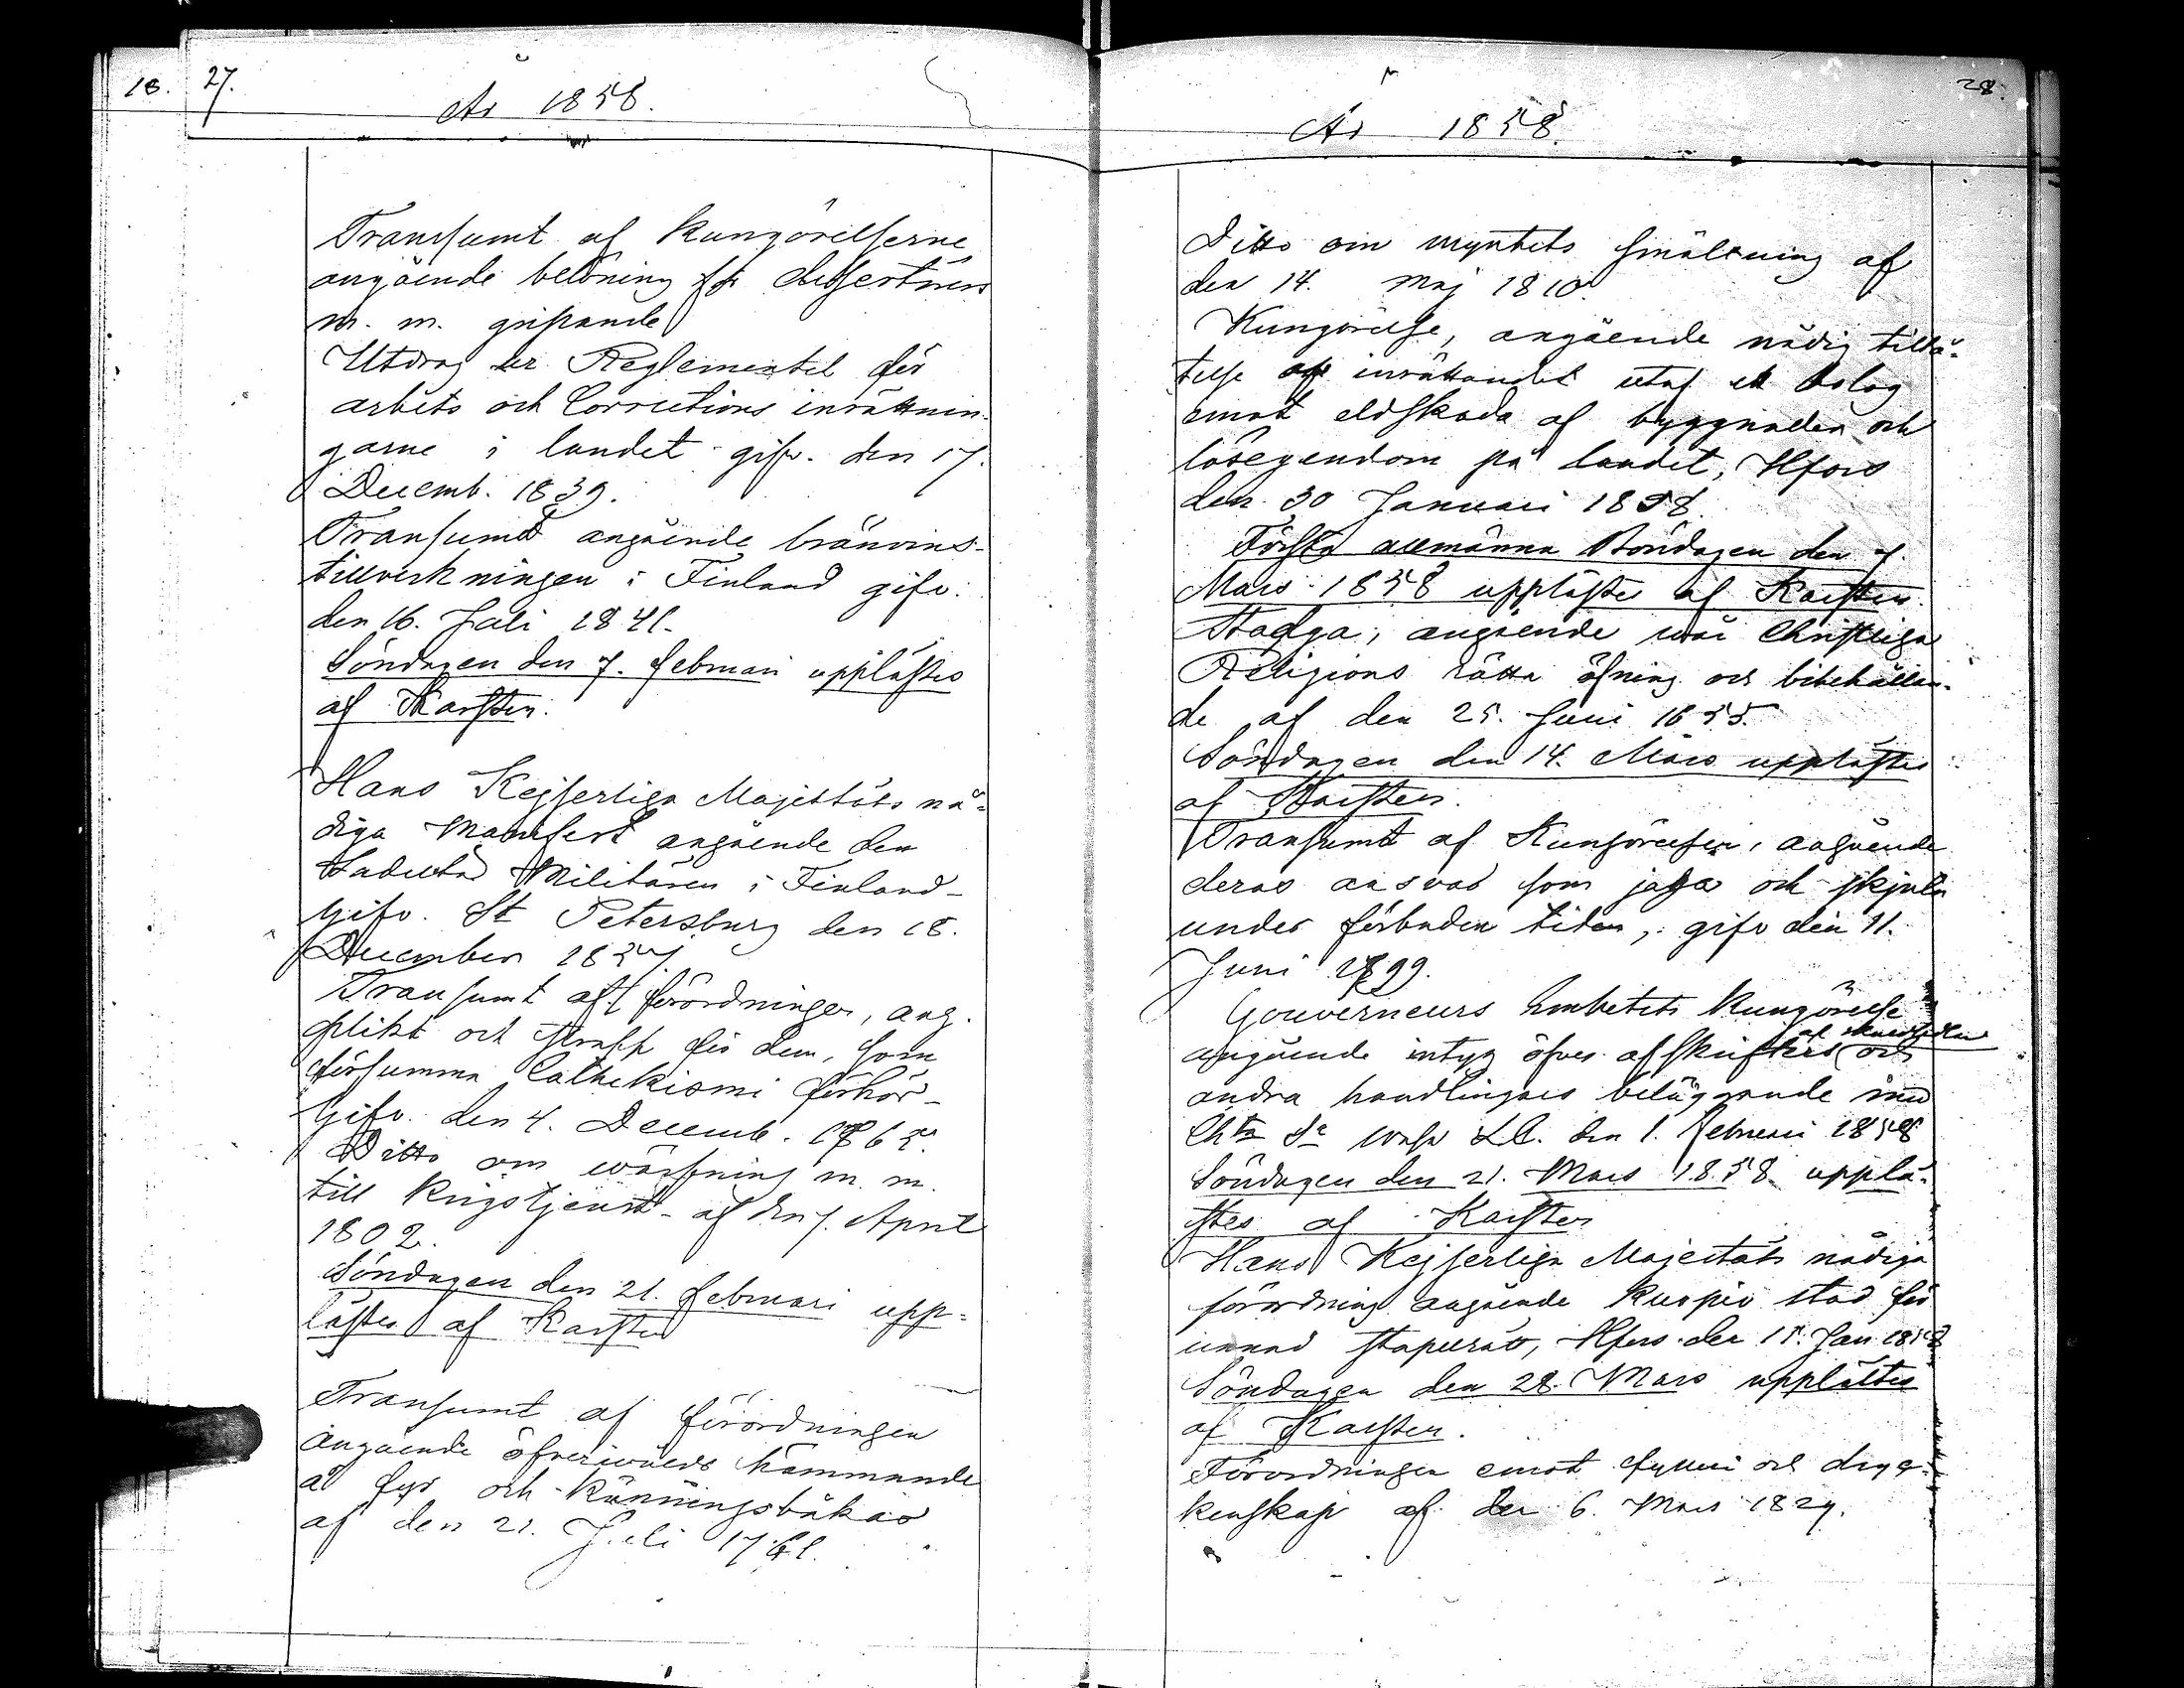 18. 27.
År 1858.
Transumt af kungörelserne
angående belöning för deserteurs
m. m. gripande
Utdrag ur Reglementet för
arbets och Corrections inrättnin-
garne i landet gifv. den 17.
Decemb. 1839.
Transumt angående bränvins-
tillverkningen i Finland gifv.
den 16. Juli 1841.
Söndagen den 7. Februari upplästes
af Karsten.
Hans Kejserliga Majestäts nå-
diga Manifest angående den
Indelta Militären i Finland
Gifv. St Petersburg den 18.
December 1857.
Transumt af förordningen, ang.
plikt och straff för dem, som
försumma Cathekismi förhör
Gifv. den 4. Decemb. 1765.
Ditto om wärfning m. m.
till krigstjenst af den 7. April
1802.
Söndagen den 21. Februari upp-
lästes af Karsten
Transumt af förordningen
angående öfverwåld kommande
å fyr och Känningsbåkar
af den 21. Juli 1761.
28.
År 1858.
Ditto om myntets smältning af
den 14. Maj 1810.
Kungörelse, angående nådig tillå-
telse af inrättandet utaf ett bolag
emot eldskada af byggnader och
lösegendom på landet, Hfors
den 30 Januari 1858.
Första allmänna Böndagen den 7.
Mars 1858 upplästes af Karsten.
Stadga, angående wår Christeliga
Religions rätta öfning och bibehållan-
de af den 25. Juni 1655.
Söndagen den 14. Mars upplästes
af Karsten.
Transumt af Kungörelsen, angående
deras ansvar som jaga och skjuta
under förbuden tiden, gifv den 11.
Juni 1799.
Gouverneurs Embetets Kungörelse
angående intyg öfver afskrifters och
andra handlingars beläggande med
Chta Sa Wasa L.C. den 1. Februari 1858
Söndagen den 21. Mars 1858 upplä-
stes af Karsten
Hans Kejserliga Majestäts nådiga
förordning angående Kuopio stad för
unnad stapelrätt, Hfors den 15. Jan 1858
Söndagen den 28. Mars upplästes
af Karsten.
Förordningen emot fylleri och dryc-
kenskap af den 6. Mars 1829.